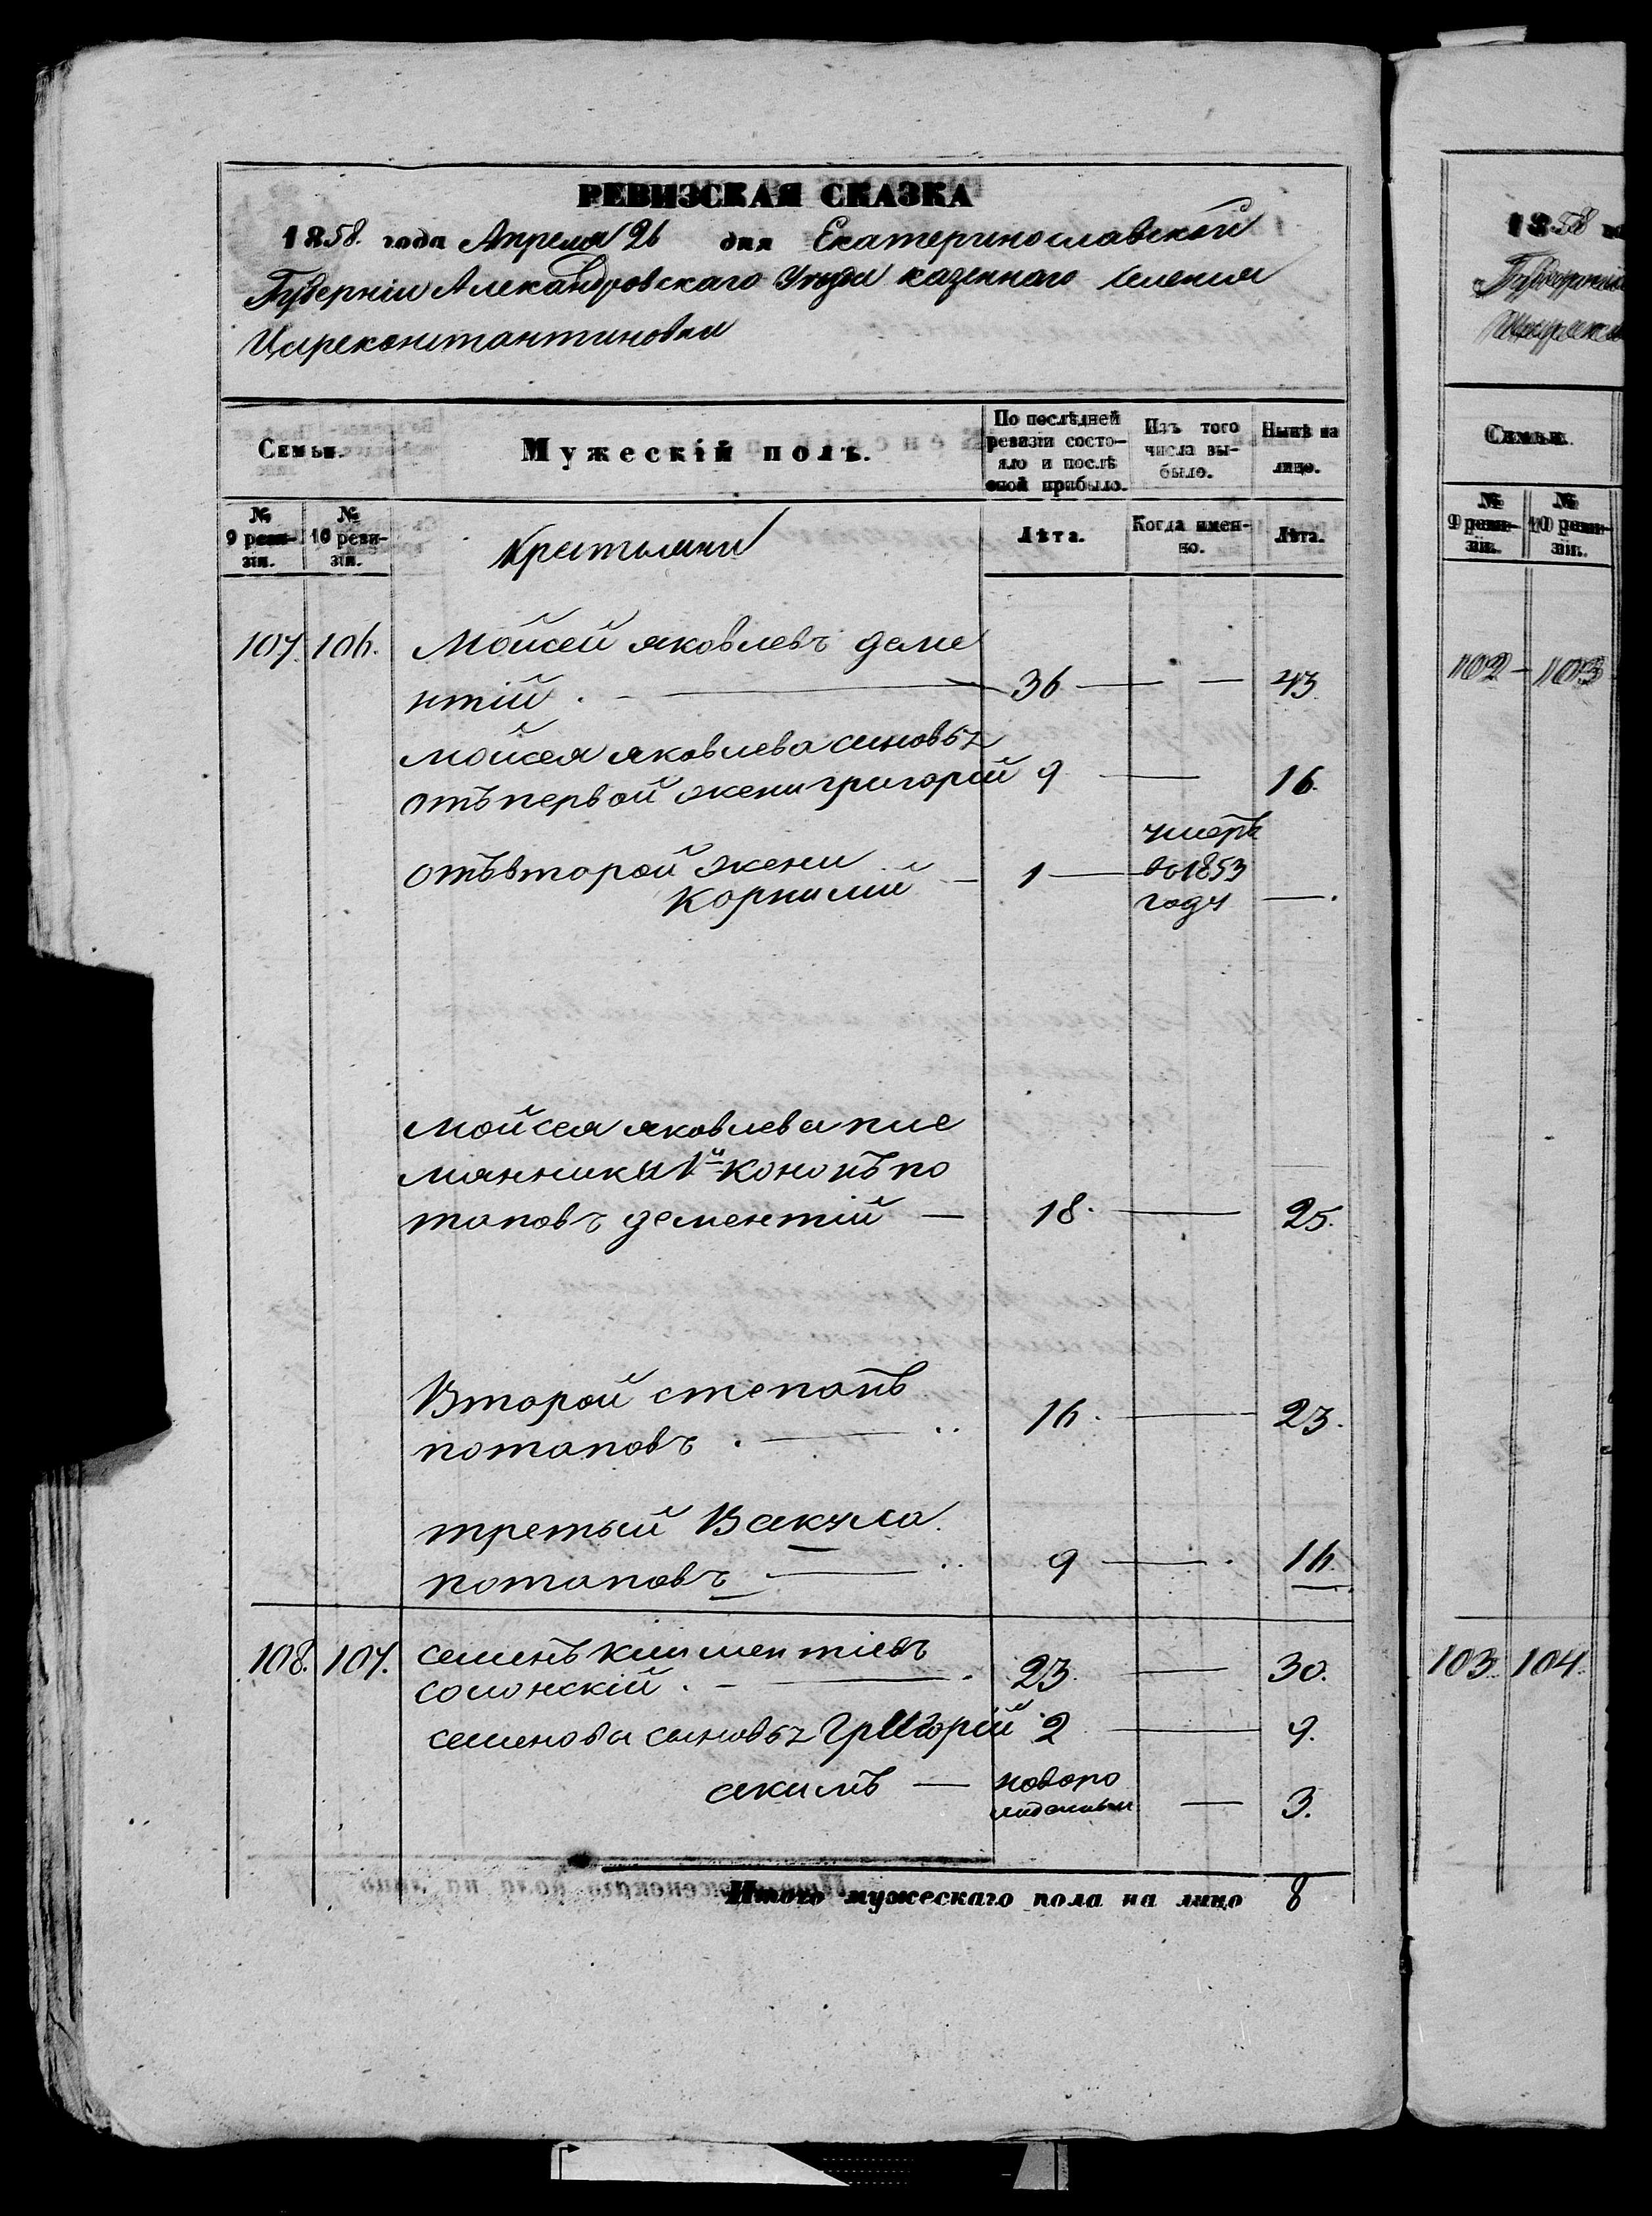 РЕВИЗСКАЯ СКАЗКА
1858. года Апреля 26 дня Екатеринославской
Губерніи Александровскаго Уезда казенного селения
Цареконстантиновки
Семьи.
Мужескій полъ.
По послѣдней ревизіи состояло и послѣ оной прибыло.
Изъ того числа выбыло.
Нынѣ на лицо.
№ 9 ревизіи.
№ 10 ревизіи.
Крестьяни
Лѣта.
Когда именно.
Лѣта.
107. 106. Мойсей яковлевъ деме
нтій . — 36 — — 43
мойсея яковлева синовья
отъ первой жени григорій 9 — 16.
умеръ
отъ второй жени
Корнилий — 1 — во 1853
году — .
Мойсея яковлева пле
мянники 1й Кононъ по
таповъ дементій — 18. — 25.
Второй степанъ
потаповъ . — 16. — 23.
третьий Вакула
потаповъ — 9 — 16.
108. 107. семенъ климентіевъ
солонскій . — 23. — 30.
семенова сыновья Григорій 2 — 9.
акимъ — новоро
— 3.
Итого мужескаго пола на лицо 8
1858
Семьи.
№ 9 ревизіи.
№ 10 ревизіи.
102 - 103
103. 104.